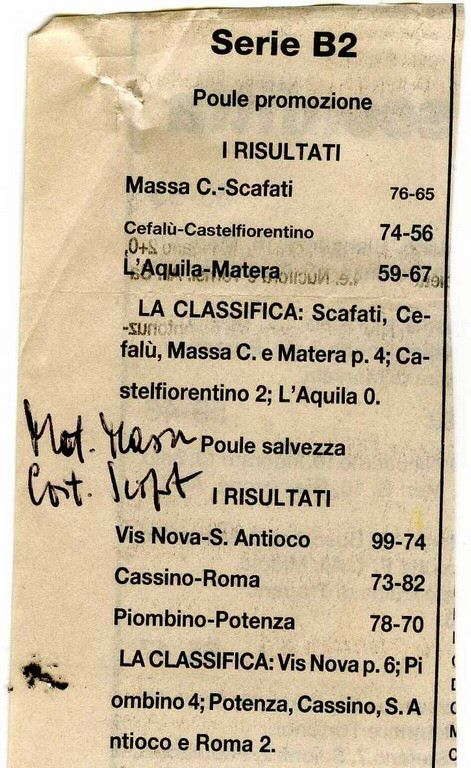 Serie B2
Poule promozione
I RISULTATI
Massa C.-Scafati 76-65
Cefalù-Castelfiorentino 74-56
L'Aquila-Matera 59-67
LA CLASSIFICA: Scafati, Ce-
falù, Massa C. e Matera p. 4; Ca-
stelfiorentino 2; L'Aquila 0.
Mat. Massa
Poule salvezza
Cast. Scafat
I RISULTATI
Vis Nova-S. Antioco 99-74
Cassino-Roma 73-82
Piombino-Potenza 78-70
LA CLASSIFICA: Vis Nova p. 6; Pi
ombino 4; Potenza, Cassino, S. A
ntioco e Roma 2.